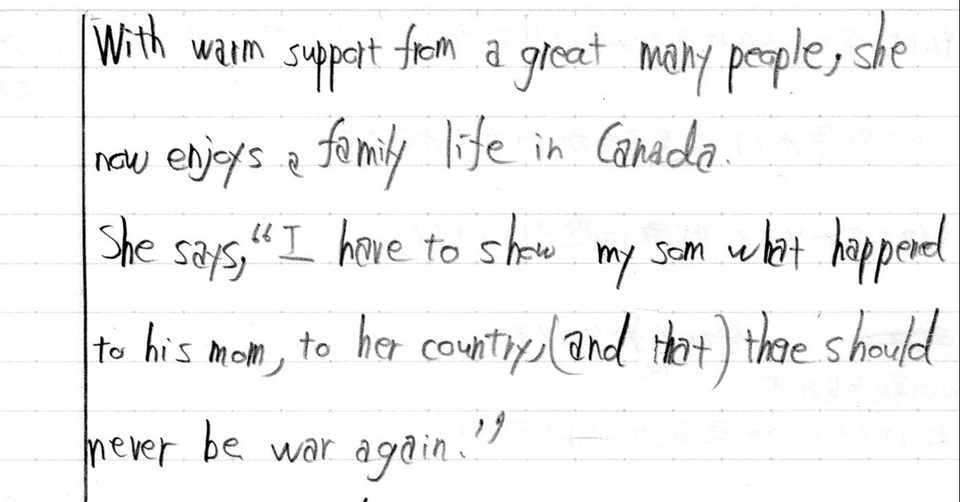 With warm support from a great many people, she
now enjoys a family life in Canada.
She says, “I have to show my som what happened
to his mom, to her country, (and that) there should
never be war again.”